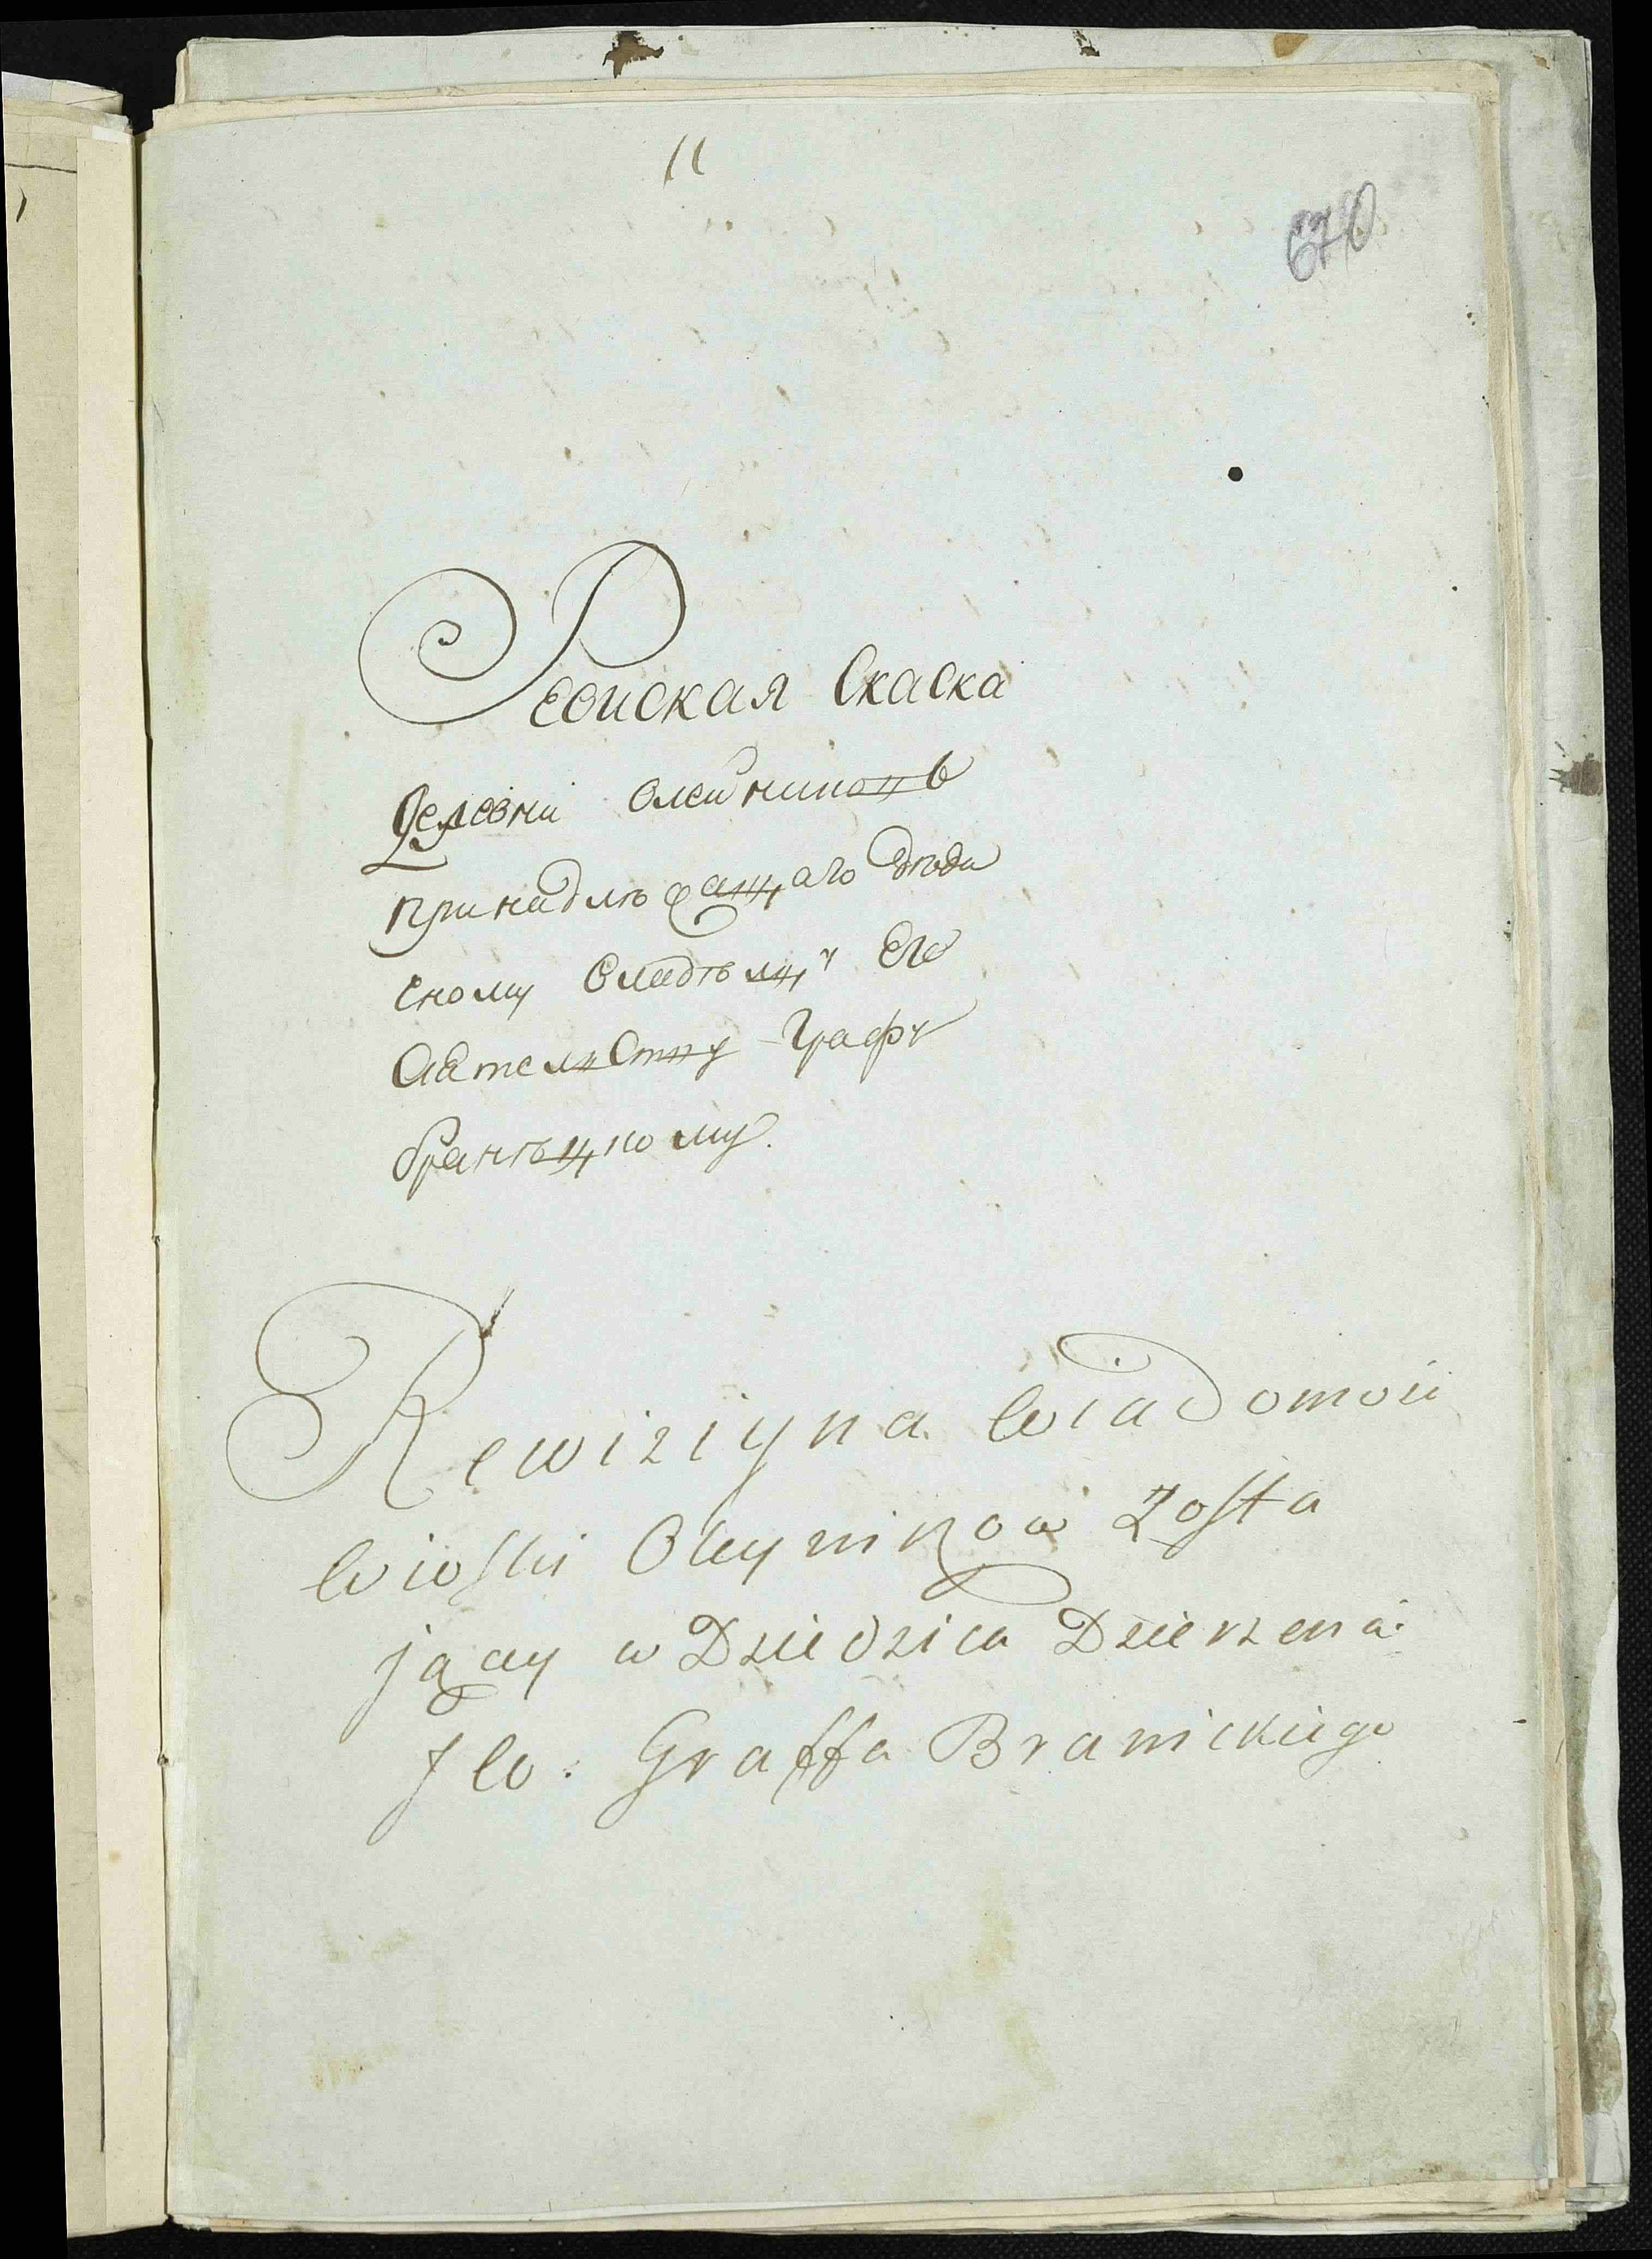 11
670
Ревиская Скаска
Деревни Олейниковъ
принадлежащаго Дѣди
сному Владѣлцу Его
Сятелству Графу
Бранѣцкому.
Rewiziyna Wiadomość
Wioski Oleynikow Zosta
jącey w Dziedzica Dzierzeniá
JW: Graffa Branickiego